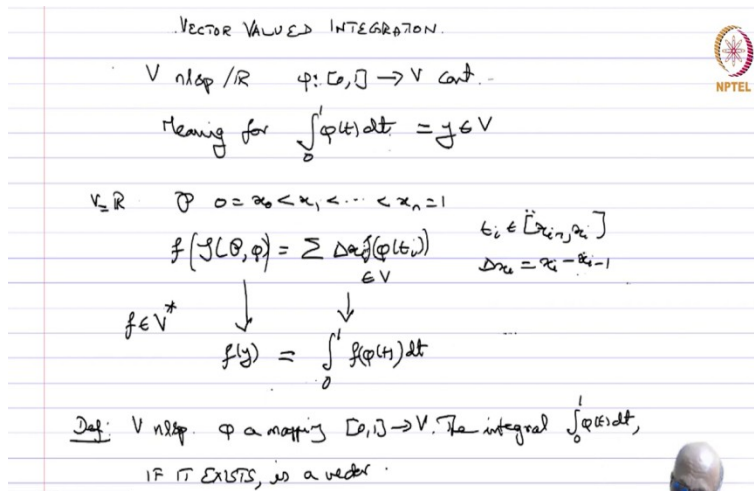 VECTOR VALUED INTEGRATION.
V nlsp /ℝ φ: [0,1] → V cont.
NPTEL
Meaning for ∫₀¹ φ(t) dt = y ∈ V
V=ℝ 𝒫 0 = x₀ < x₁ < ⋯ < xₙ = 1
f(S(𝒫,φ)) = Σ Δxᵢ f(φ(tᵢ)) tᵢ ∈ [xᵢ₋₁, xᵢ]
∈ V Δxᵢ = xᵢ − xᵢ₋₁
f ∈ V* ↓ ↓
f(y) = ∫₀¹ f(φ(t)) dt
Def: V nlsp. φ a mapping [0,1] → V. The integral ∫₀¹ φ(t) dt,
IF IT EXISTS, is a vector.